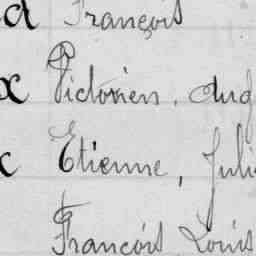 François
Victorien, Aug
Etienne, Juli
François Louis